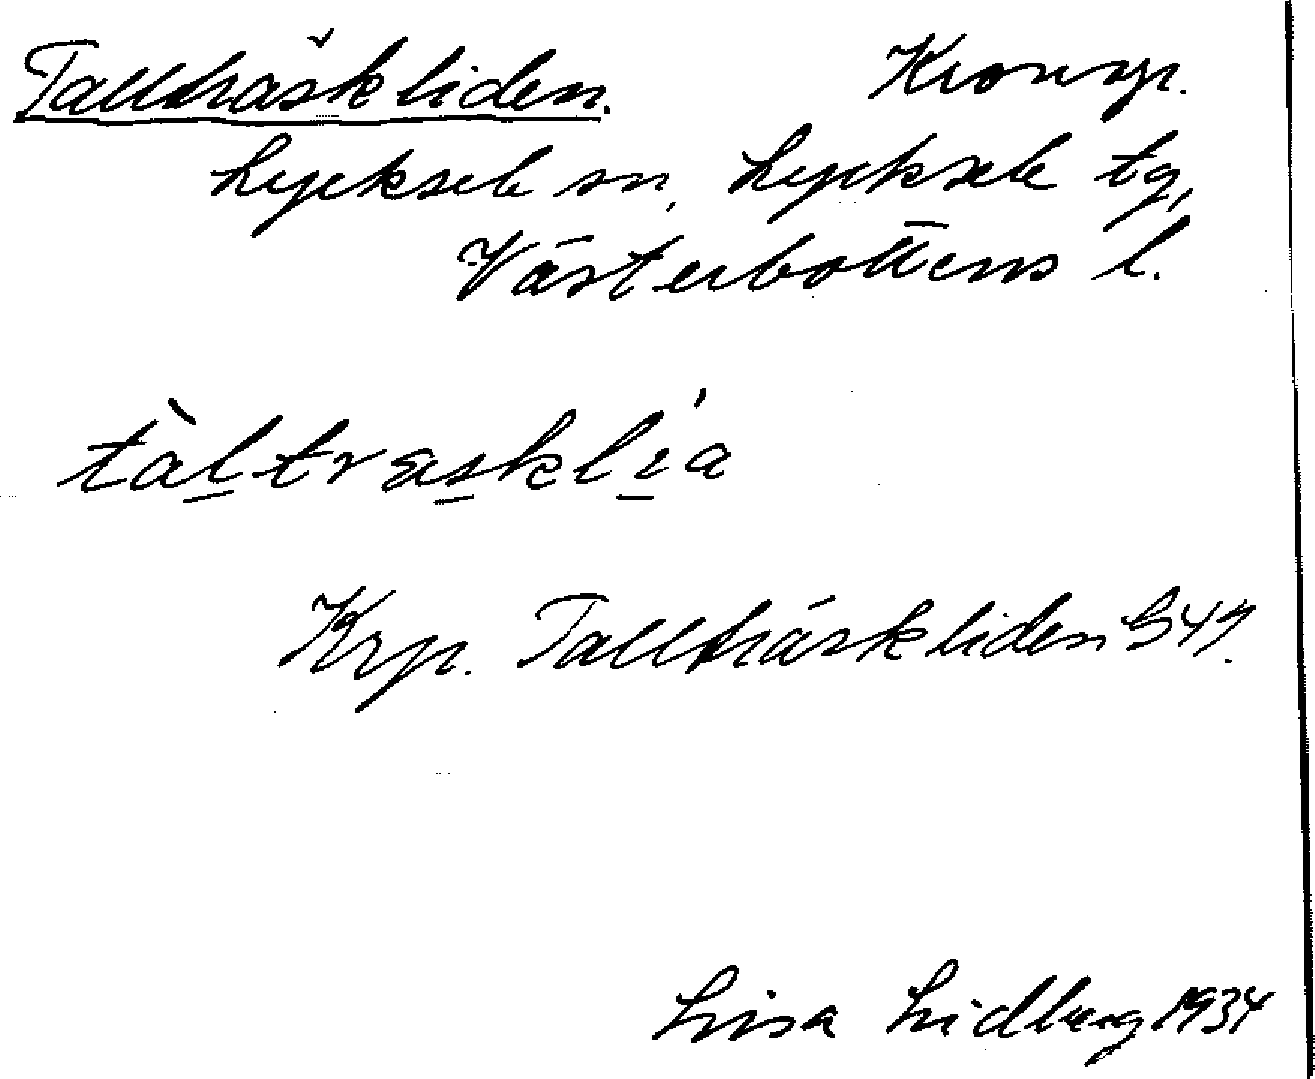 Tallträskliden. Kronop.
Lycksele sn, Lycksele tg,
Västerbottens l.
tàltrasklı́a
Krp. Tallträskliden
Lisa Lidberg 1934